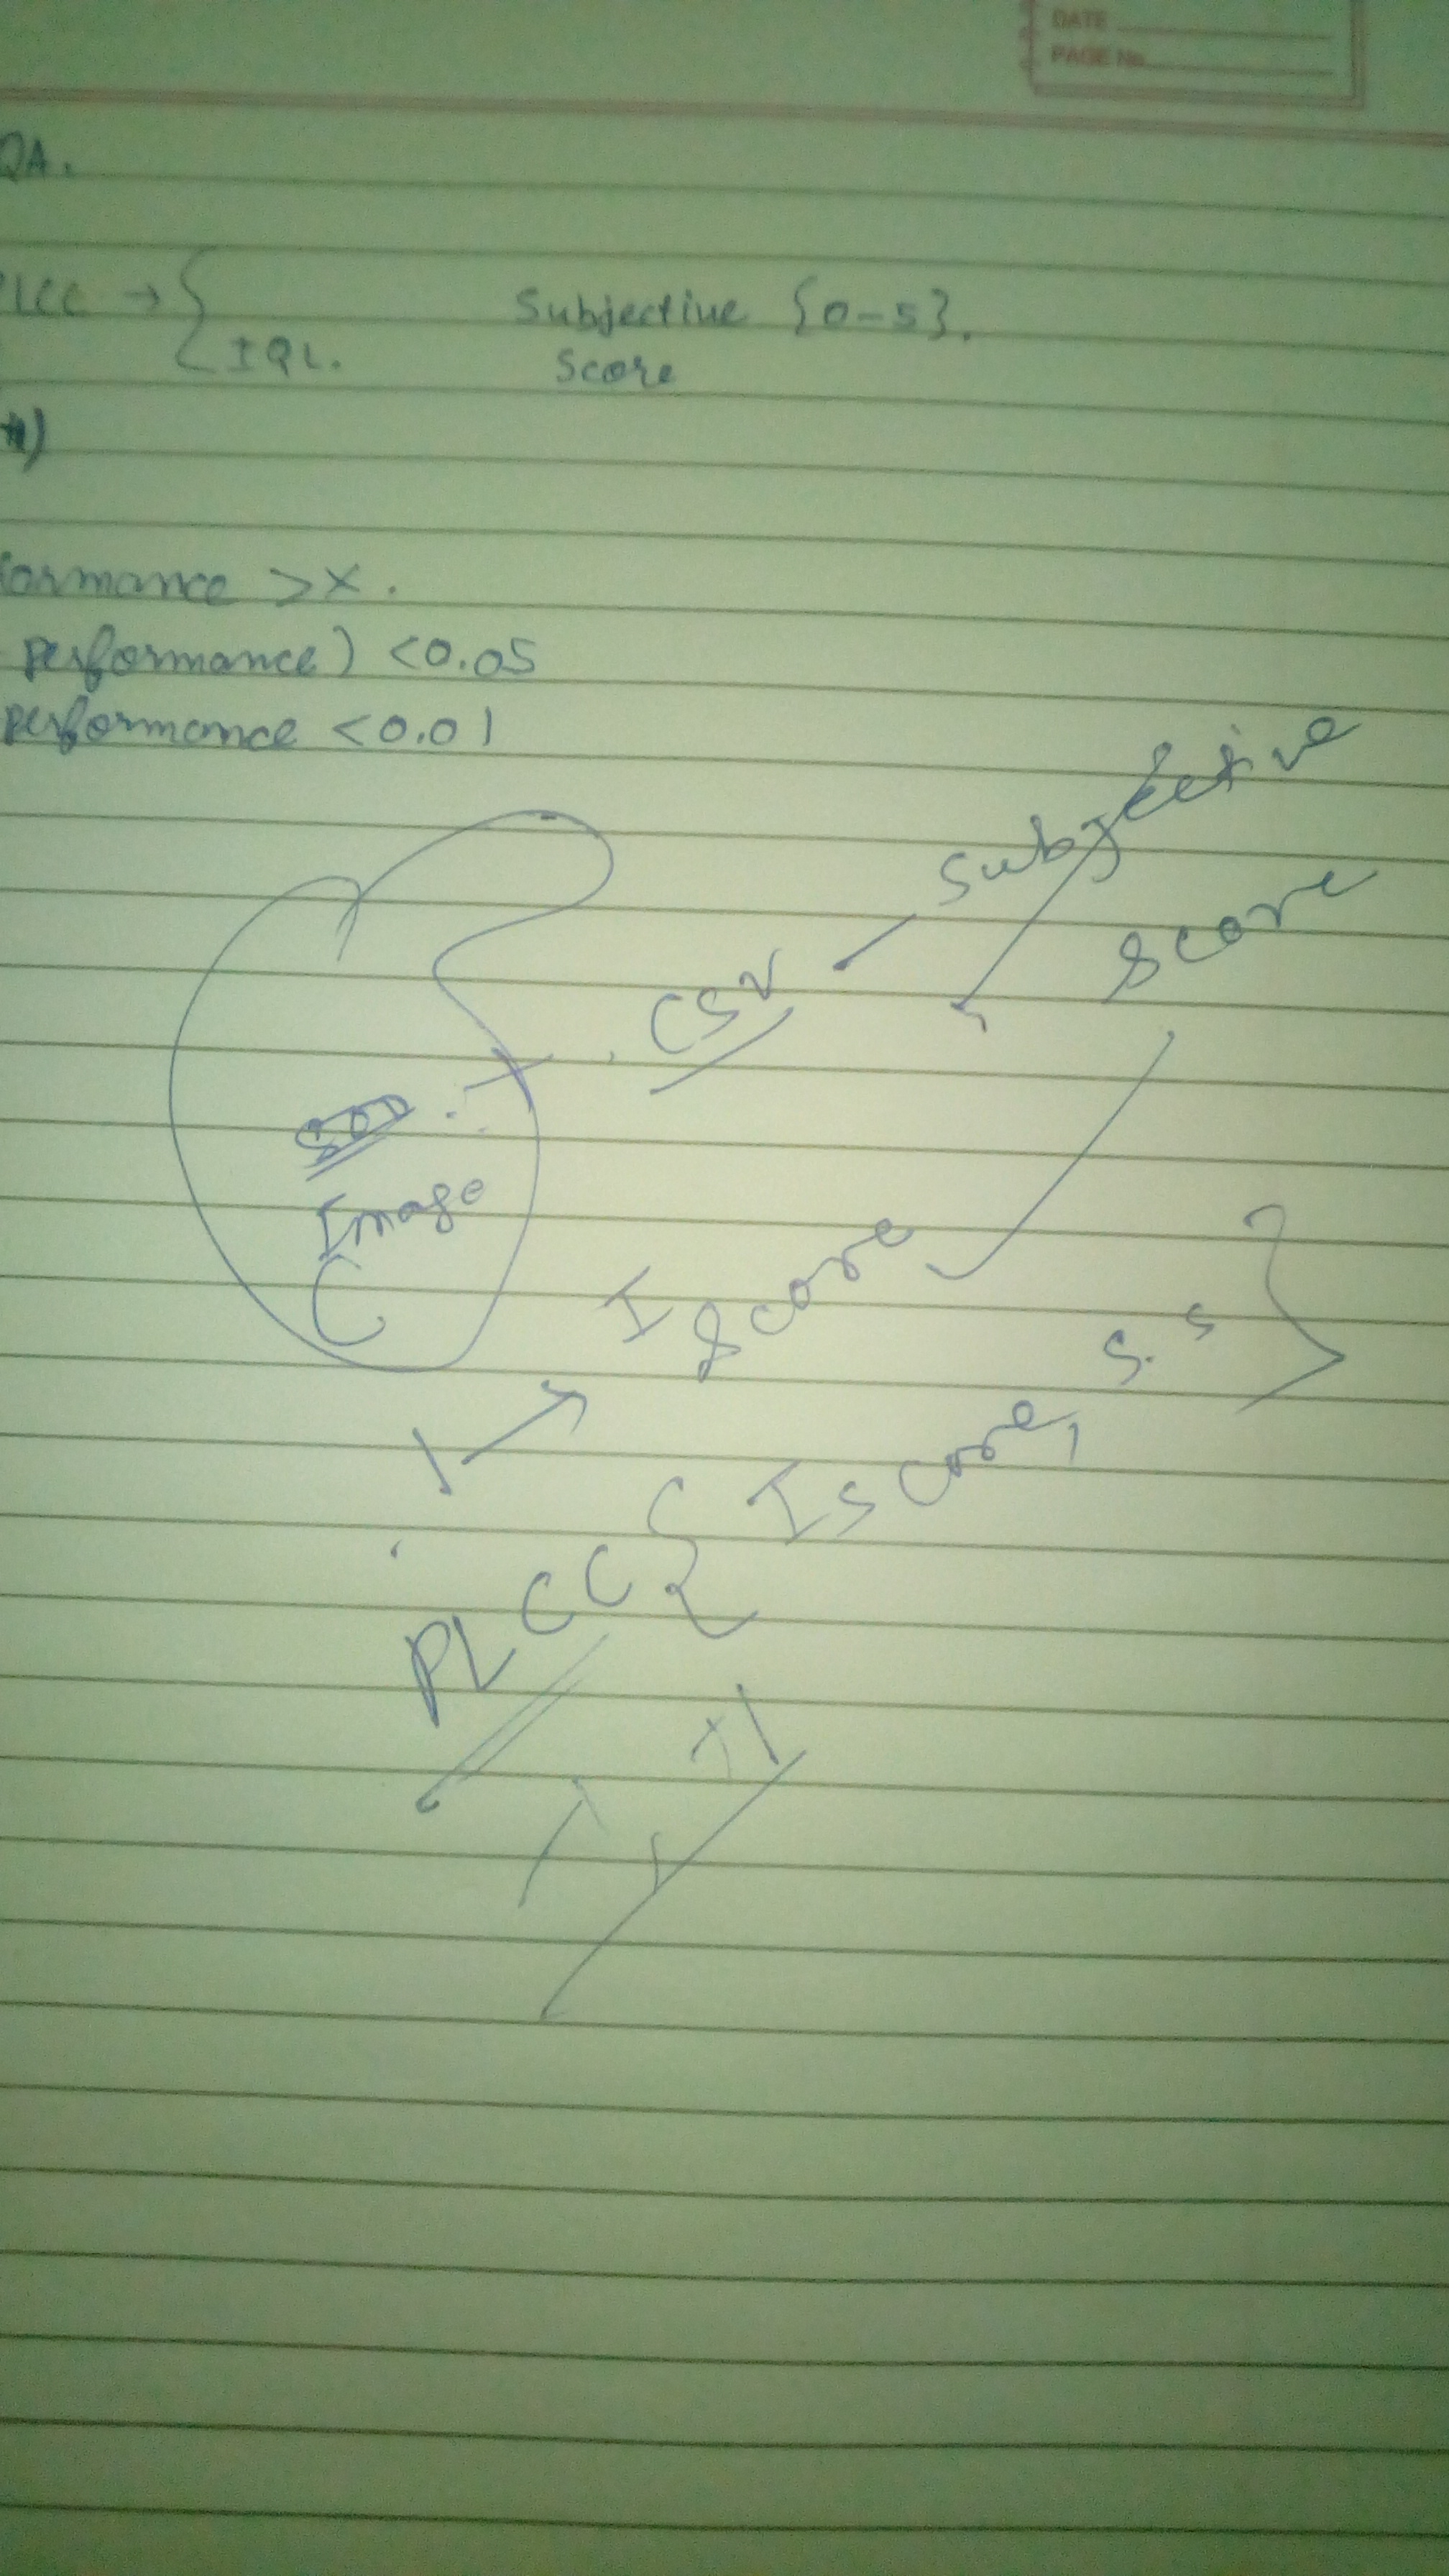 DATE
PAGE No.
QA.
LCC → { Subjective {0-5}.
IQL. Score
ormance >X.
performance) <0.05
performance <0.01
Subjective
Score
.CSV
Image
C
I score
S.S }
PLCC { Iscore,